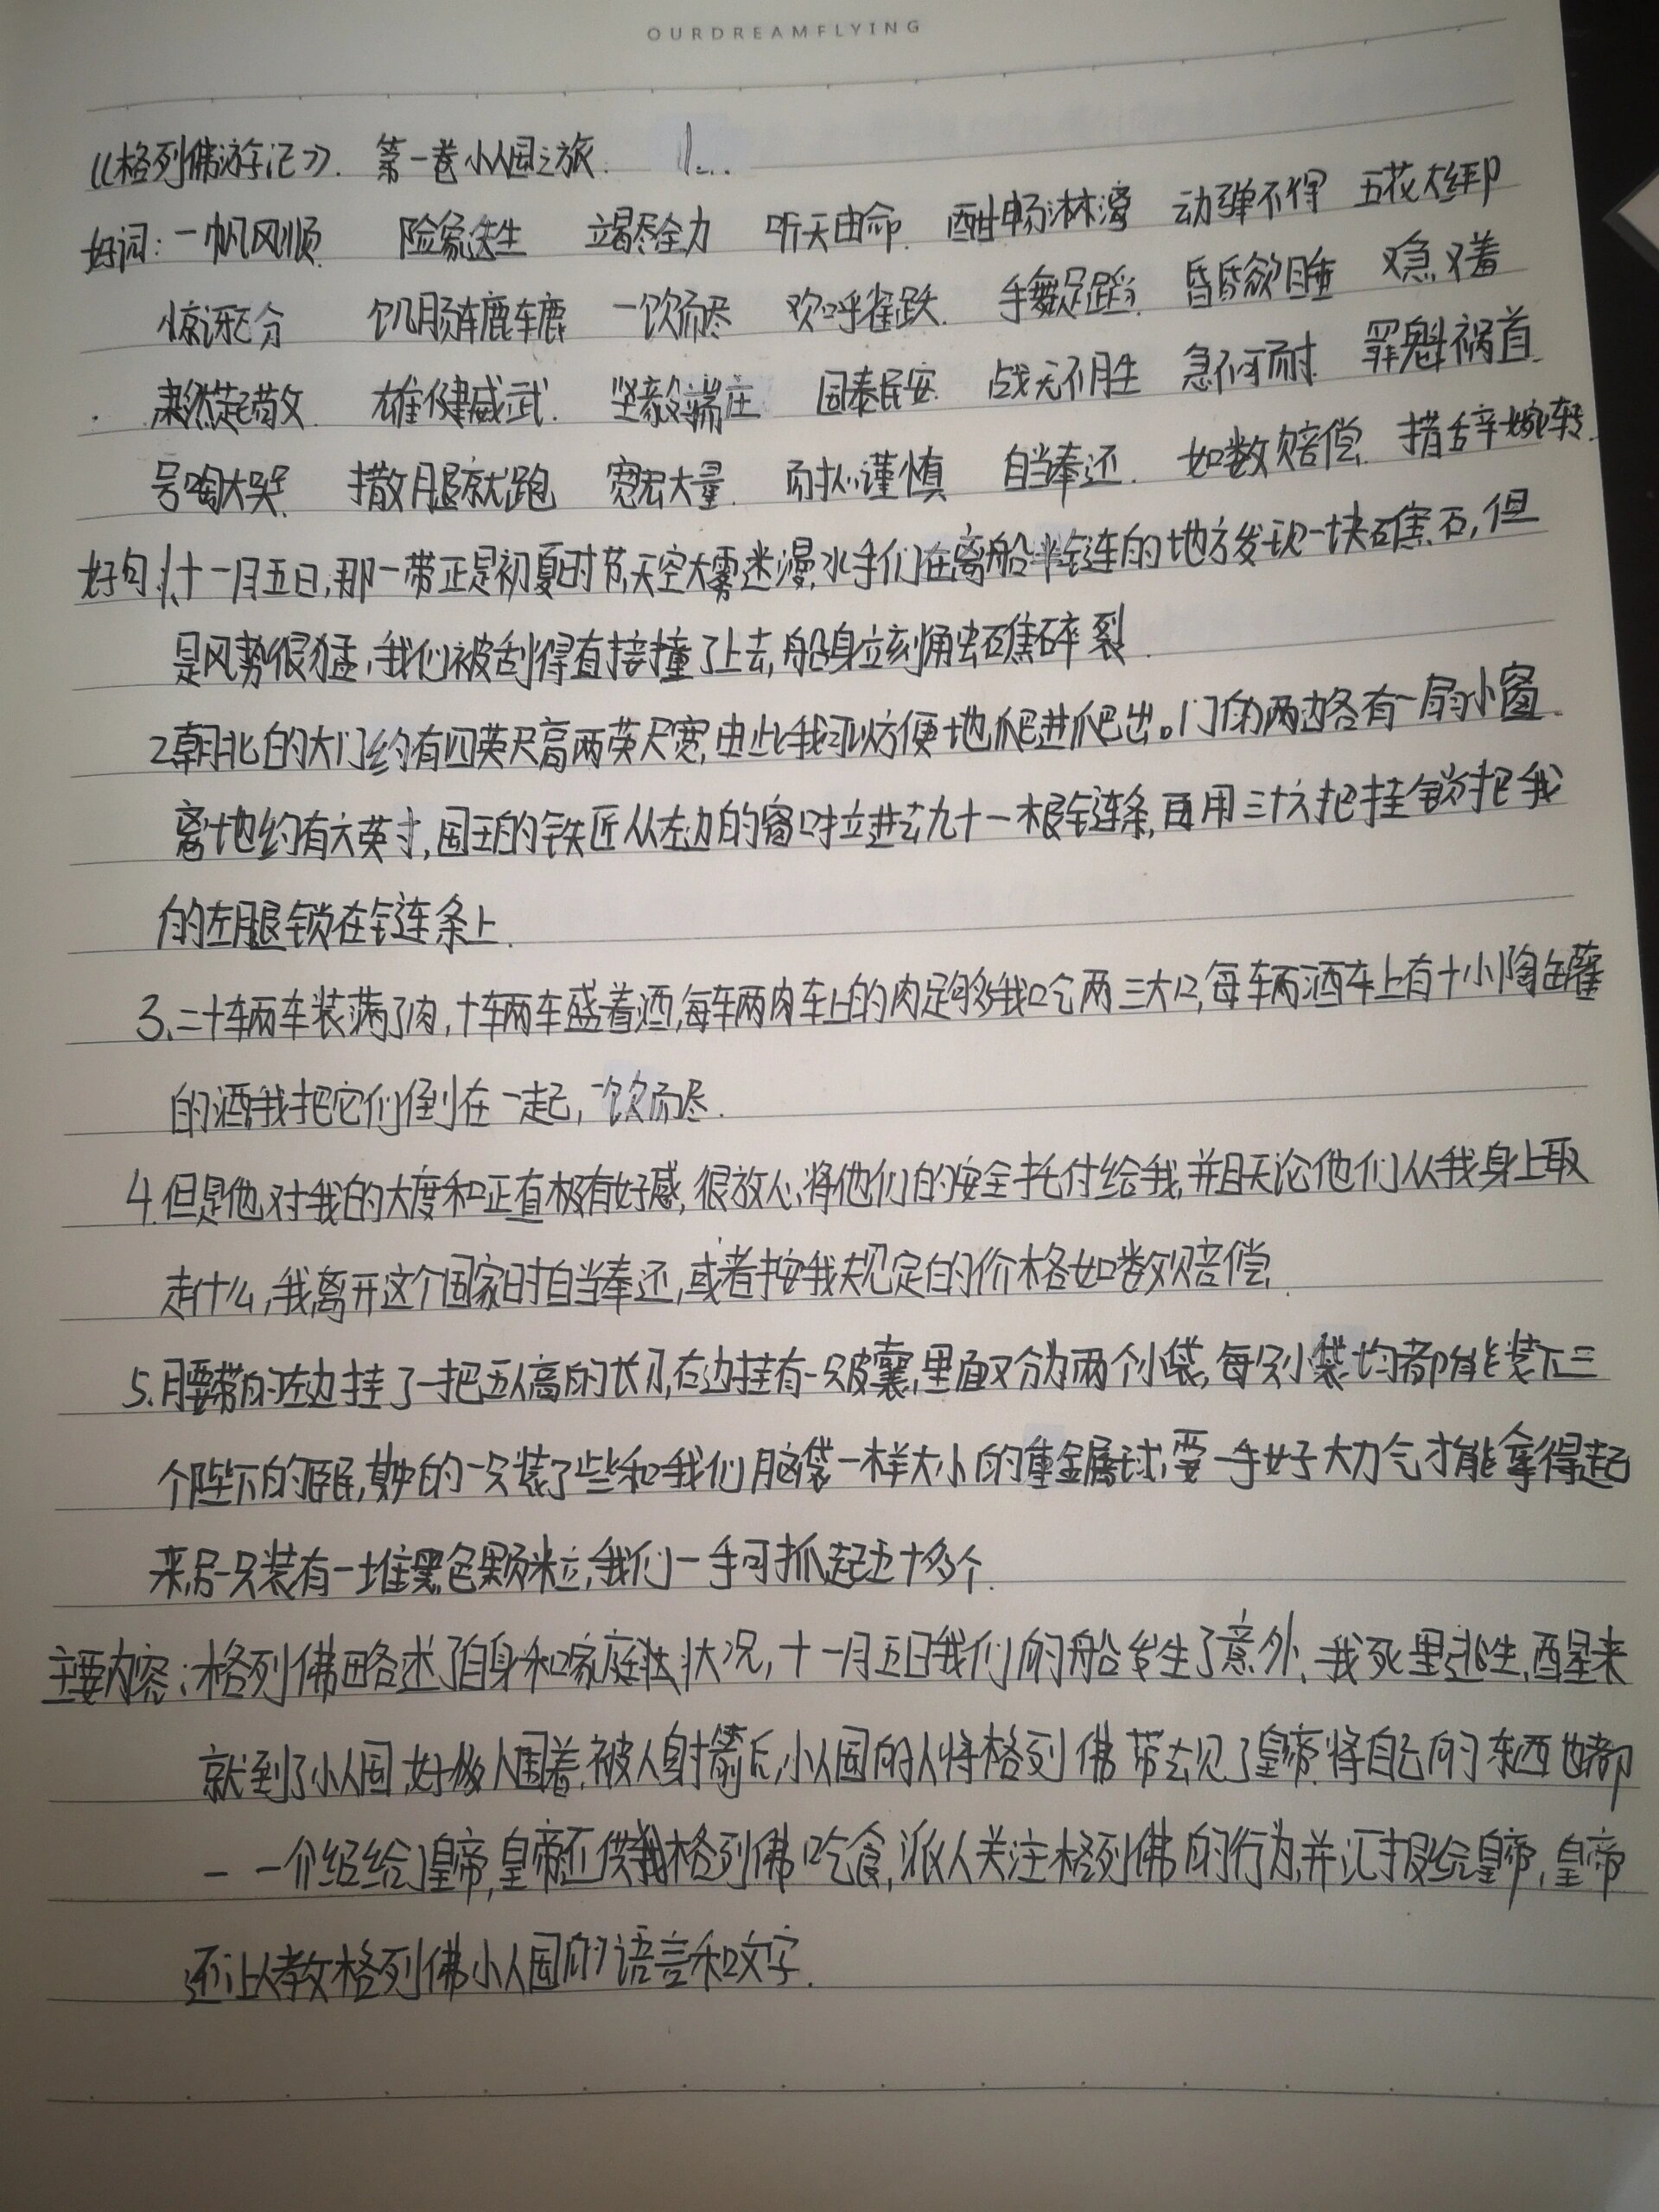 OURDREAMFLYING
《格列佛游记》. 第一卷小人国之旅. 1...
好词:一帆风顺 险象迭生 竭尽全力 听天由命. 酣畅淋漓 动弹不得 五花大绑
惊讶万分 饥肠辘辘 一饮而尽 欢呼雀跃. 手舞足蹈. 昏昏欲睡 又急又羞
肃然起敬 雄健威武. 坚毅端庄 国泰民安. 战无不胜 急不可耐. 罪魁祸首.
号啕大哭. 撒腿就跑 宽宏大量. 耐心谨慎 自当奉还. 如数赔偿. 措辞婉转.
好句:1.十一月五日,那一带正是初夏时节,天空大雾迷漫,水手们在离船半链的地方发现一块礁石,但
是风势很猛,我们被刮得直接撞了上去,船身立刻触礁碎裂.
2.朝北的大门约有四英尺高两英尺宽,由此我可以方便地爬进爬出。门的两边各有一扇小窗.
离地约有六英寸,国王的铁匠从左边的窗口拉进去九十一根链条,再用三十六把挂锁把我
的左腿锁在链条上.
3.二十辆车装满了肉,十辆车盛着酒,每辆肉车上的肉足够我吃两三大口,每辆酒车上有十小陶罐
的酒,我把它们倒在一起,一饮而尽.
4.但是他对我的大度和正直极有好感,很放心将他们的安全托付给我,并且无论他们从我身上取
走什么,我离开这个国家时自当奉还,或者按我规定的价格如数赔偿.
5.腰带的左边挂了一把五人高的长刀,右边挂有一只皮囊,里面又分为两个小袋,每只小袋均都能装下三
个陛下的臣民,其中的一只装了些和我们脑袋一样大小的重金属球,要一手好大力气才能拿得起
来,另一只装有一堆黑色颗粒,我们一手可抓起五十多个.
主要内容:格列佛略述了自身和家庭状况,十一月五日我们的船发生了意外,我死里逃生,醒来
就到了小人国,好像人围着,被人射箭后,小人国的人将格列佛带去见了皇帝,将自己的东西也都
一一介绍给皇帝,皇帝还供格列佛吃食,派人关注格列佛的行为,并汇报给皇帝,皇帝
还让人教格列佛小人国的语言和文字.